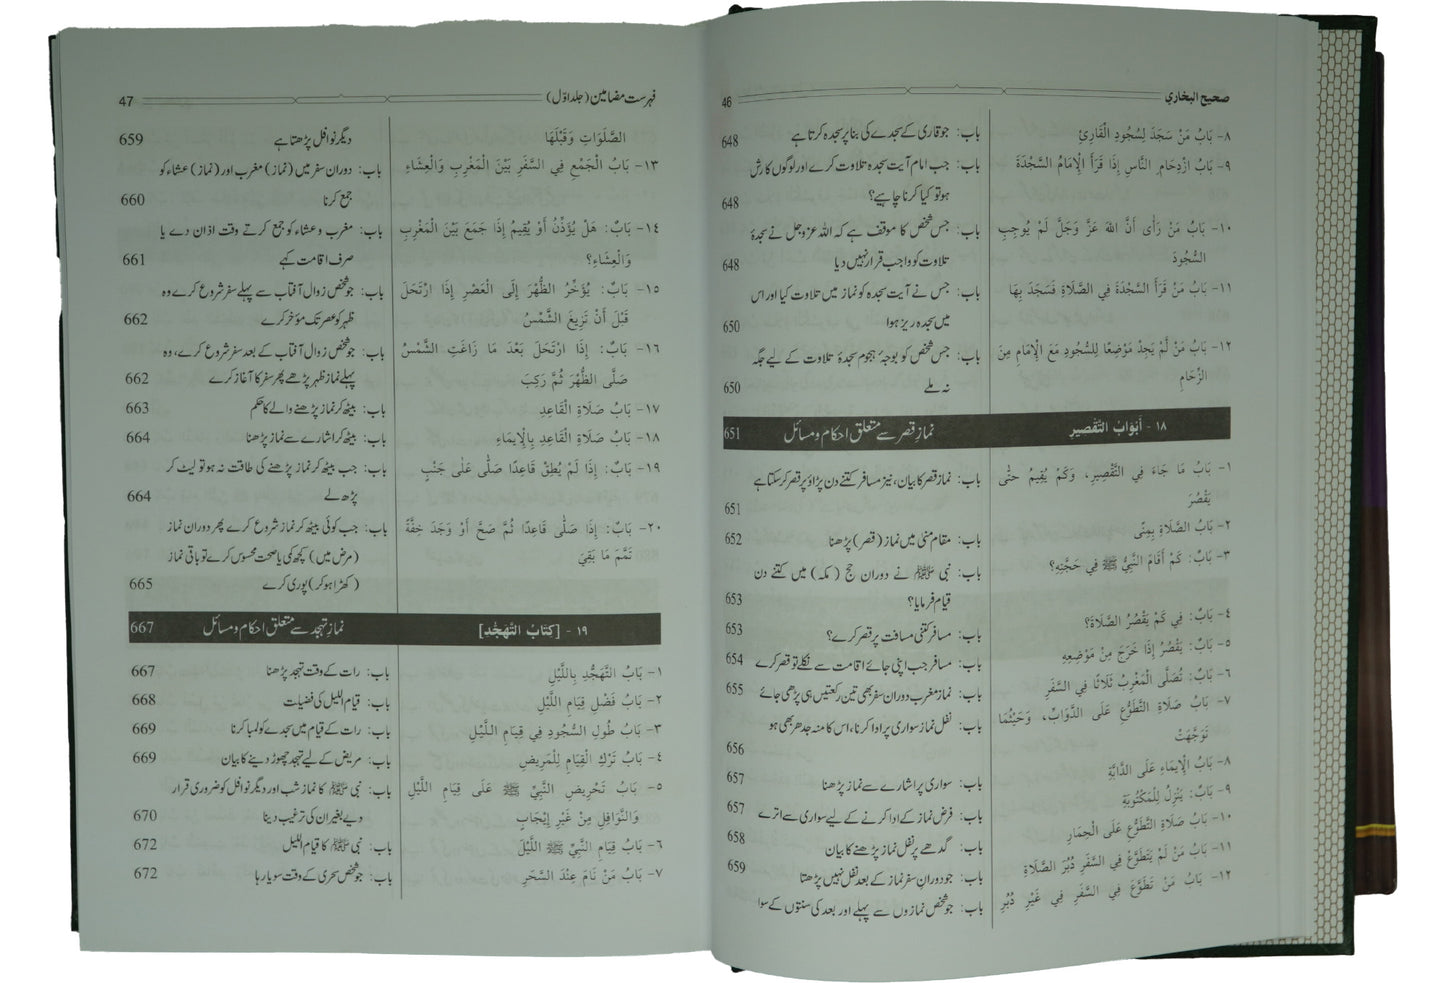 صحيح البخاري 46
۸- بَابُ مَنْ سَجَدَ لِسُجُودِ الْقَارِئِ باب: جو قاری کے سجدے کی بنا پر سجدہ کرتا ہے 648
۹- بَابُ ازْدِحَامِ النَّاسِ إِذَا قَرَأَ الْإِمَامُ السَّجْدَةَ باب: جب امام آیت سجدہ تلاوت کرے اور لوگوں کا رش
ہو تو کیا کرنا چاہیے؟ 648
۱۰- بَابُ مَنْ رَأَى أَنَّ اللهَ عَزَّ وَجَلَّ لَمْ يُوجِبِ باب: جس شخص کا موقف ہے کہ اللہ عزوجل نے سجدۂ
السُّجُودَ تلاوت کو واجب قرار نہیں دیا 648
۱۱- بَابُ مَنْ قَرَأَ السَّجْدَةَ فِي الصَّلَاةِ فَسَجَدَ بِهَا باب: جس نے آیت سجدہ کو نماز میں تلاوت کیا اور اس
میں سجدہ ریز ہوا 650
۱۲- بَابُ مَنْ لَمْ يَجِدْ مَوْضِعًا لِلسُّجُودِ مَعَ الْإِمَامِ مِنَ باب: جس شخص کو بوجۂ ہجوم سجدۂ تلاوت کے لیے جگہ
الزِّحَامِ نہ ملے 650
۱۸- أَبْوَابُ التَّقْصِيرِ نماز قصر سے متعلق احکام و مسائل 651
۱- بَابُ مَا جَاءَ فِي التَّقْصِيرِ، وَكَمْ يُقِيمُ حَتَّى باب: نماز قصر کا بیان، نیز مسافر کتنے دن پڑاؤ پر قصر کر سکتا ہے
يَقْصُرَ 651
۲- بَابُ الصَّلَاةِ بِمِنًى باب: مقام منیٰ میں نماز (قصر) پڑھنا 652
۳- بَابٌ: كَمْ أَقَامَ النَّبِيُّ ﷺ فِي حَجَّتِهِ؟ باب: نبی ﷺ نے دوران حج (مکہ) میں کتنے دن
قیام فرمایا؟ 653
۴- بَابٌ: فِي كَمْ يَقْصُرُ الصَّلَاةَ؟ باب: مسافر کتنی مسافت پر قصر کرے؟ 653
۵- بَابٌ: يَقْصُرُ إِذَا خَرَجَ مِنْ مَوْضِعِهِ باب: مسافر جب اپنی جائے اقامت سے نکلے تو قصر کرے 654
۶- بَابٌ: تُصَلَّى الْمَغْرِبُ ثَلَاثًا فِي السَّفَرِ باب: نماز مغرب دوران سفر بھی تین رکعتیں ہی پڑھی جائے 655
۷- بَابُ صَلَاةِ التَّطَوُّعِ عَلَى الدَّوَابِّ، وَحَيْثُمَا باب: نفل نماز سواری پر ادا کرنا، اس کا منہ جدھر بھی ہو
تَوَجَّهَتْ 656
۸- بَابُ الْإِيمَاءِ عَلَى الدَّابَّةِ باب: سواری پر اشارے سے نماز پڑھنا 657
۹- بَابٌ: يَنْزِلُ لِلْمَكْتُوبَةِ باب: فرض نماز کے ادا کرنے کے لیے سواری سے اترے 657
۱۰- بَابُ صَلَاةِ التَّطَوُّعِ عَلَى الْحِمَارِ باب: گدھے پر نفل نماز پڑھنے کا بیان 658
۱۱- بَابُ مَنْ لَمْ يَتَطَوَّعْ فِي السَّفَرِ دُبُرَ الصَّلَاةِ باب: جو دوران سفر نماز کے بعد نفل نہیں پڑھتا 659
۱۲- بَابُ مَنْ تَطَوَّعَ فِي السَّفَرِ فِي غَيْرِ دُبُرِ باب: جو شخص نمازوں سے پہلے اور بعد کی سنتوں کے سوا
فہرست مضامین (جلد اوّل) 47
الصَّلَوَاتِ وَقَبْلَهَا دیگر نوافل پڑھتا ہے 659
۱۳- بَابُ الْجَمْعِ فِي السَّفَرِ بَيْنَ الْمَغْرِبِ وَالْعِشَاءِ باب: دوران سفر میں (نماز) مغرب اور (نماز) عشاء کو
جمع کرنا 660
۱۴- بَابٌ: هَلْ يُؤَذِّنُ أَوْ يُقِيمُ إِذَا جَمَعَ بَيْنَ الْمَغْرِبِ باب: مغرب و عشاء کو جمع کرتے وقت اذان دے یا
وَالْعِشَاءِ؟ صرف اقامت کہے 661
۱۵- بَابٌ: يُؤَخِّرُ الظُّهْرَ إِلَى الْعَصْرِ إِذَا ارْتَحَلَ باب: جو شخص زوال آفتاب سے پہلے سفر شروع کرے وہ
قَبْلَ أَنْ تَزِيغَ الشَّمْسُ ظہر کو عصر تک مؤخر کرے 662
۱۶- بَابٌ: إِذَا ارْتَحَلَ بَعْدَ مَا زَاغَتِ الشَّمْسُ باب: جو شخص زوال آفتاب کے بعد سفر شروع کرے، وہ
صَلَّى الظُّهْرَ ثُمَّ رَكِبَ پہلے نماز ظہر پڑھے پھر سفر کا آغاز کرے 662
۱۷- بَابُ صَلَاةِ الْقَاعِدِ باب: بیٹھ کر نماز پڑھنے والے کا حکم 663
۱۸- بَابُ صَلَاةِ الْقَاعِدِ بِالْإِيمَاءِ باب: بیٹھ کر اشارے سے نماز پڑھنا 664
۱۹- بَابٌ: إِذَا لَمْ يُطِقْ قَاعِدًا صَلَّى عَلَى جَنْبٍ باب: جب بیٹھ کر نماز پڑھنے کی طاقت نہ ہو تو لیٹ کر
پڑھ لے 664
۲۰- بَابٌ: إِذَا صَلَّى قَاعِدًا ثُمَّ صَحَّ أَوْ وَجَدَ خِفَّةً باب: جب کوئی بیٹھ کر نماز شروع کرے پھر دوران نماز
تَمَّمَ مَا بَقِيَ (مرض میں) کچھ کمی یا صحت محسوس کرے تو باقی نماز
(کھڑا ہو کر) پوری کرے 665
۱۹- [كِتَابُ التَّهَجُّدِ] نماز تہجد سے متعلق احکام و مسائل 667
۱- بَابُ التَّهَجُّدِ بِاللَّيْلِ باب: رات کے وقت تہجد پڑھنا 667
۲- بَابُ فَضْلِ قِيَامِ اللَّيْلِ باب: قیام اللیل کی فضیلت 668
۳- بَابُ طُولِ السُّجُودِ فِي قِيَامِ اللَّيْلِ باب: رات کے قیام میں سجدے کو لمبا کرنا 669
۴- بَابُ تَرْكِ الْقِيَامِ لِلْمَرِيضِ باب: مریض کے لیے تہجد چھوڑ دینے کا بیان 669
۵- بَابُ تَحْرِيضِ النَّبِيِّ ﷺ عَلَى قِيَامِ اللَّيْلِ باب: نبی ﷺ کا نماز شب اور دیگر نوافل کو ضروری قرار
وَالنَّوَافِلِ مِنْ غَيْرِ إِيجَابٍ دیے بغیر ان کی ترغیب دینا 670
۶- بَابُ قِيَامِ النَّبِيِّ ﷺ اللَّيْلَ باب: نبی ﷺ کا قیام اللیل 672
۷- بَابُ مَنْ نَامَ عِنْدَ السَّحَرِ باب: جو شخص سحری کے وقت سویا رہا 672